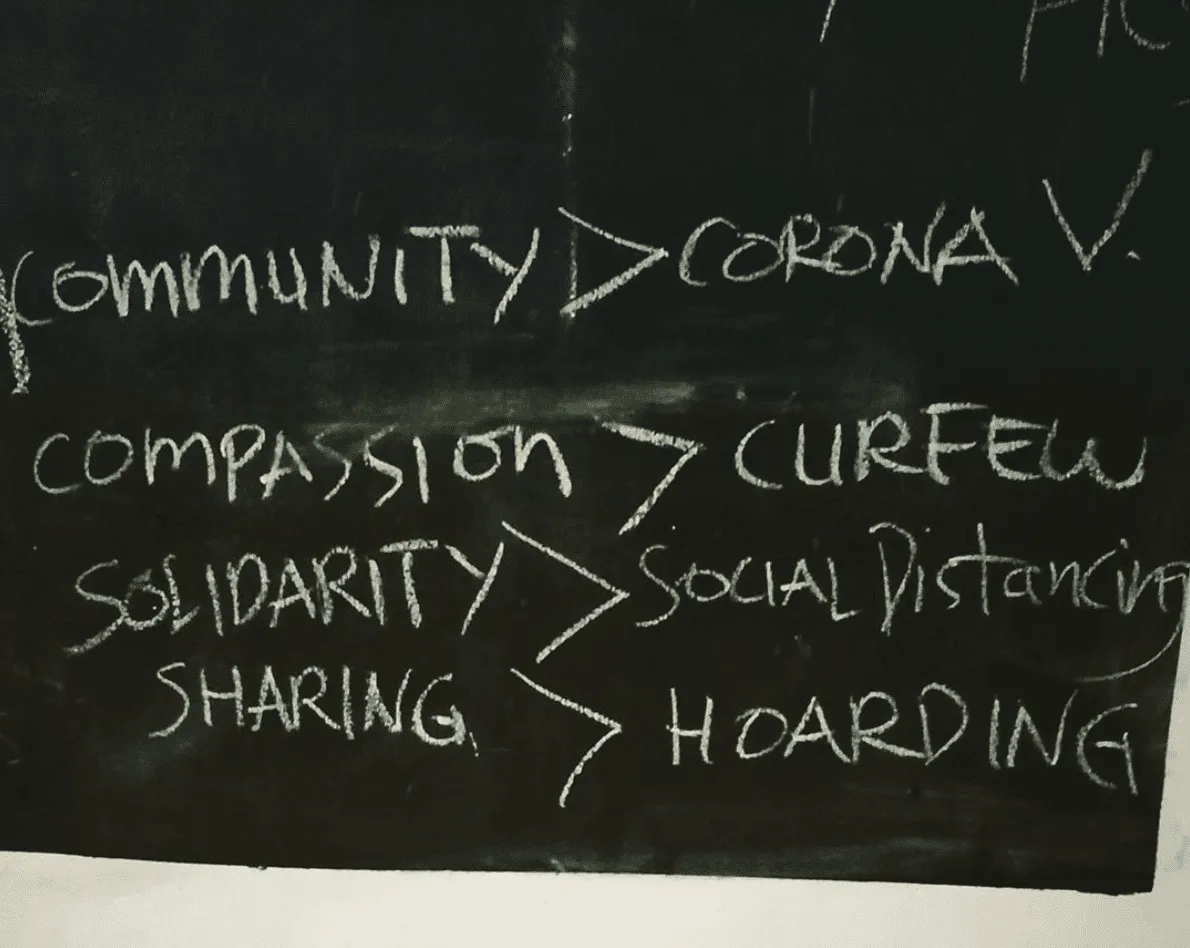 COMMUNITY > CORONA V.
COMPASSION > CURFEW
SOLIDARITY > SOCIAL Distancing
SHARING > HOARDING